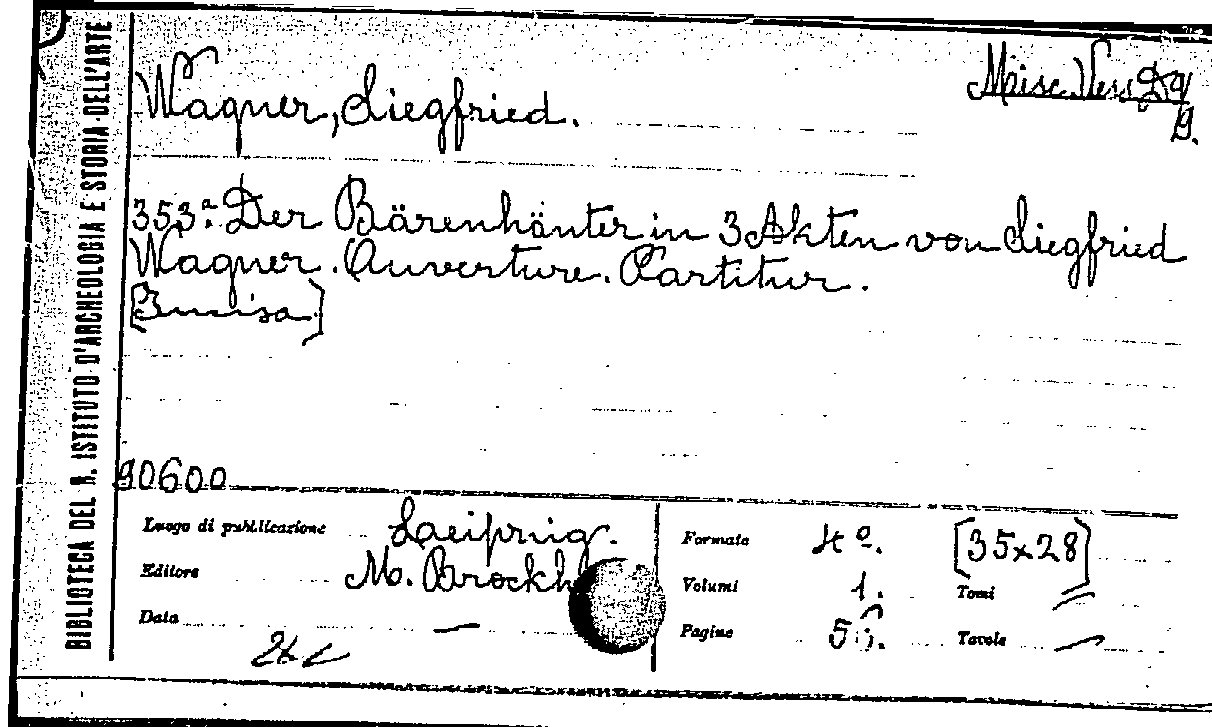 BIBLIOTECA DEL R. ISTITUTO D'ARCHEOLOGIA E STORIA DELL'ARTE
Wagner, Siegfried.
Misc. Vess. D 9/
9.
353ª: Der Bärenhänter in 3 Akten von Siegfried
Wagner. Ouverture. Partitur.
90600
Luogo di pubblicazione Laeipzig.
Editore M. Brockh
Data —
Formato 4º. [35x28]
Volumi 1. Tomi
Pagine Tavole